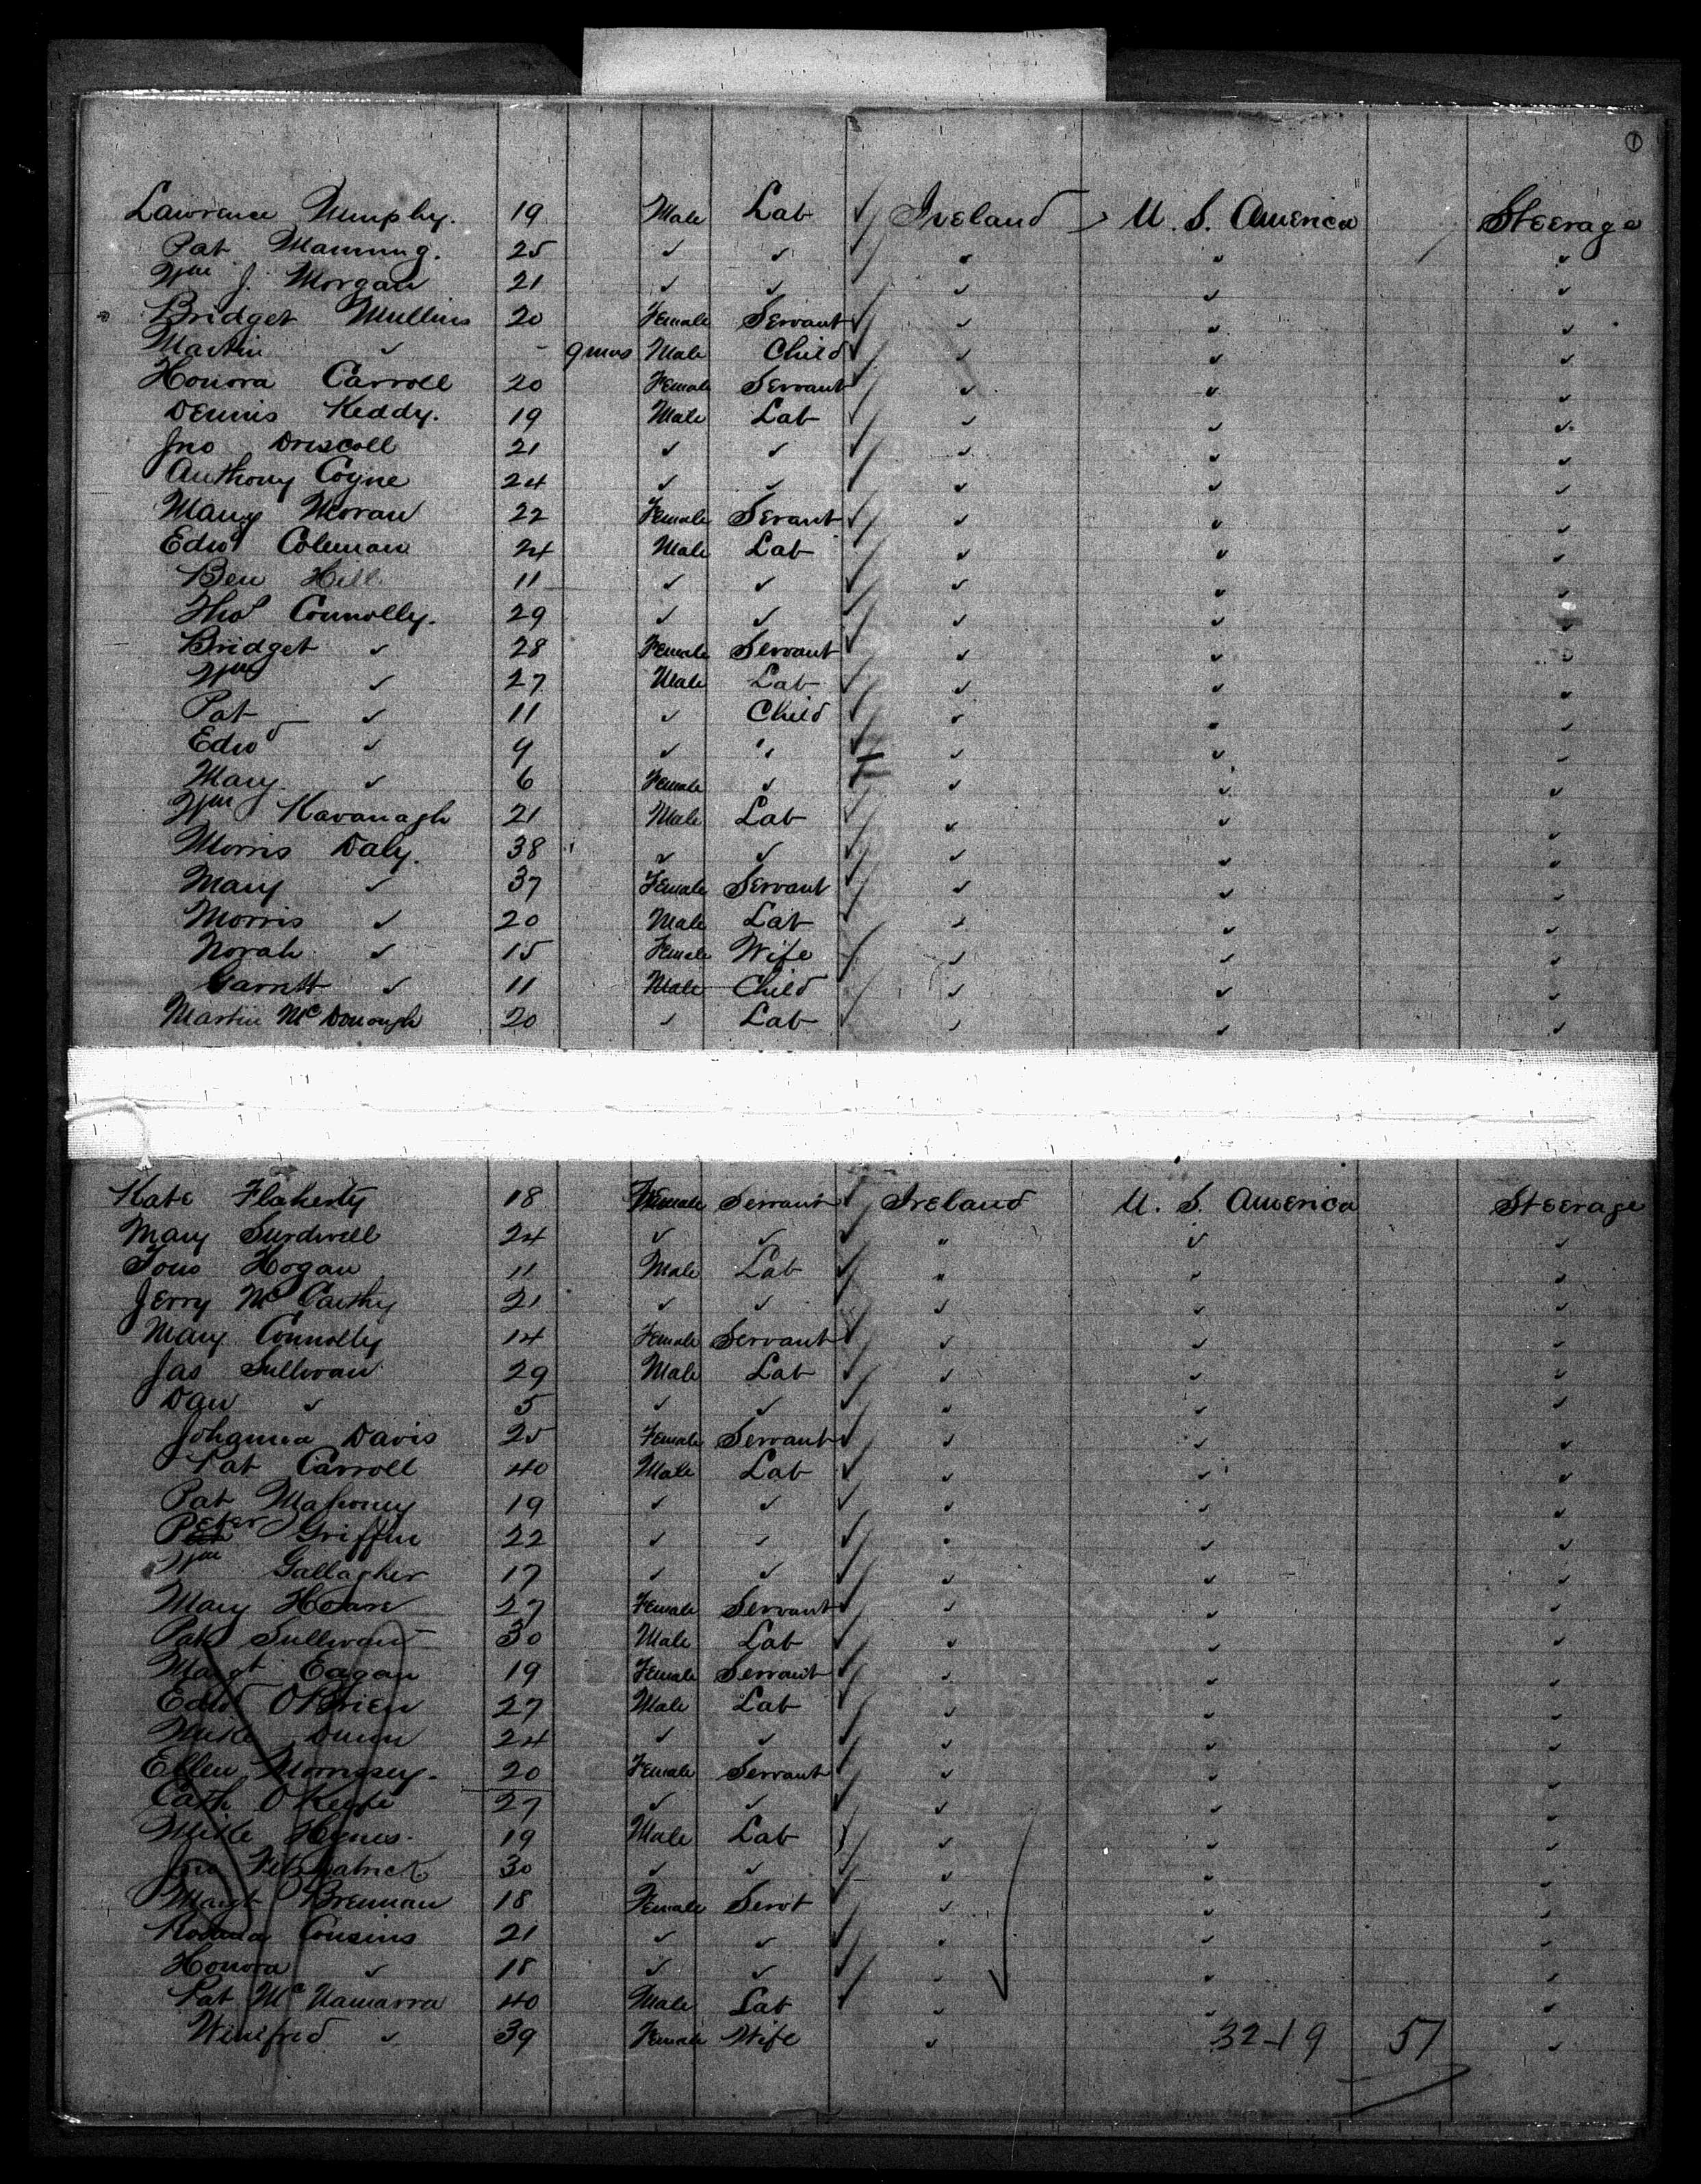 1
Lawrence Murphy. 19 Male Lab ✓ Ireland U. S. America Steerage
Pat Manning. 25 ✓ ✓ ✓ ✓ ✓ ✓
Wm J. Morgan 21 ✓ ✓ ✓ ✓ ✓ ✓
Bridget Mullins 20 Female Servant ✓ ✓ ✓ ✓
Martin ✓ - 9 mos Male Child ✓ ✓ ✓ ✓
Honora Carroll 20 Female Servant ✓ ✓ ✓ ✓
Dennis Keddy. 19 Male Lab ✓ ✓ ✓ ✓
Jno Driscoll 21 ✓ ✓ ✓ ✓ ✓ ✓
Anthony Coyne 24 ✓ ✓ ✓ ✓ ✓ ✓
Mary Moran 22 Female Sevant ✓ ✓ ✓ ✓
Edwd Coleman 24 Male Lab ✓ ✓ ✓ ✓
Ben Hill 11 ✓ ✓ ✓ ✓ ✓ ✓
Thos Connolly. 29 ✓ ✓ ✓ ✓ ✓ ✓
Bridget ✓ 28 Female Servant ✓ ✓ ✓ ✓
Wm ✓ 27 Male Lab ✓ ✓ ✓ ✓
Pat ✓ 11 ✓ Child ✓ ✓ ✓ ✓
Edwd ✓ 9 ✓ " ✓ ✓ ✓ ✓
Mary ✓ 6 Female ✓ ✓ ✓ ✓
Wm Kavanagh 21 Male Lab ✓ ✓ ✓ ✓
Morris Daly. 38 ✓ ✓ ✓ ✓ ✓ ✓
Mary ✓ 37 Female Servant ✓ ✓ ✓ ✓
Morris ✓ 20 Male Lab ✓ ✓ ✓ ✓
Norah ✓ 15 Female Wife ✓ ✓ ✓
Garrett ✓ 11 Male Child ✓ ✓ ✓
Martin McDonough 20 ✓ Lab ✓ ✓ ✓ ✓
Kate Flaherty 18 Female Servant ✓ Ireland U. S. America Steerage
Mary 24 ✓ ✓ ✓ " ✓ ✓
Hogan 11 Male Lab ✓ " ✓ ✓
Jerry McCarthy 21 ✓ ✓ ✓ ✓ ✓ ✓
Mary Connolly 14 Female Servant ✓ ✓ ✓ ✓
Jas Sullivan 29 Male Lab ✓ ✓ ✓ ✓
Dan ✓ 5 ✓ ✓ ✓ ✓ ✓ ✓
Johanna Davis 25 Female Servant ✓ ✓ ✓ ✓
Pat Carroll 40 Male Lab ✓ ✓ ✓ ✓
Pat Mahoney 19 ✓ ✓ ✓ ✓ ✓ ✓
Peter Griffin 22 ✓ ✓ ✓ ✓ ✓ ✓
Wm Gallagher 17 ✓ ✓ ✓ ✓ ✓ ✓
Mary Hoare 27 Female Servant ✓ ✓ ✓ ✓
Pat Sullivan 30 Male Lab ✓ ✓ ✓ ✓
Margt Eagan 19 Female Servant ✓ ✓ ✓ ✓
Edwd OBrien 27 Male Lab ✓ ✓ ✓ ✓
Mike Dunn 24 ✓ ✓ ✓ ✓ ✓ ✓
Ellen Morrissey. 20 Female Servant ✓ ✓ ✓ ✓
Cath OKeefe 27 ✓ ✓ ✓ ✓ ✓ ✓
Mike Hynes. 19 Male Lab ✓ ✓ ✓ ✓
Jno Fitzpatrick 30 ✓ ✓ ✓ ✓ ✓ ✓
Margt Brennan 18 Female Servt ✓ ✓ ✓ ✓
Cousins 21 ✓ ✓ ✓ ✓ ✓ ✓
Honora ✓ 18 ✓ ✓ ✓ ✓ ✓ ✓
Pat McNamarra 40 Male Lab ✓ ✓ ✓ ✓
Winifred ✓ 39 Female Wife ✓ 32-19 51 ✓